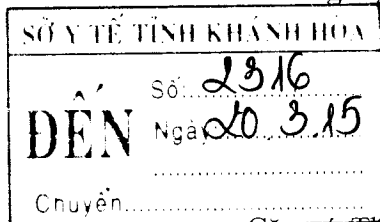 SỞ Y TẾ TỈNH KHÁNH HÒA
ĐẾN
Số: 2316
Ngày 20.3.15
Chuyển